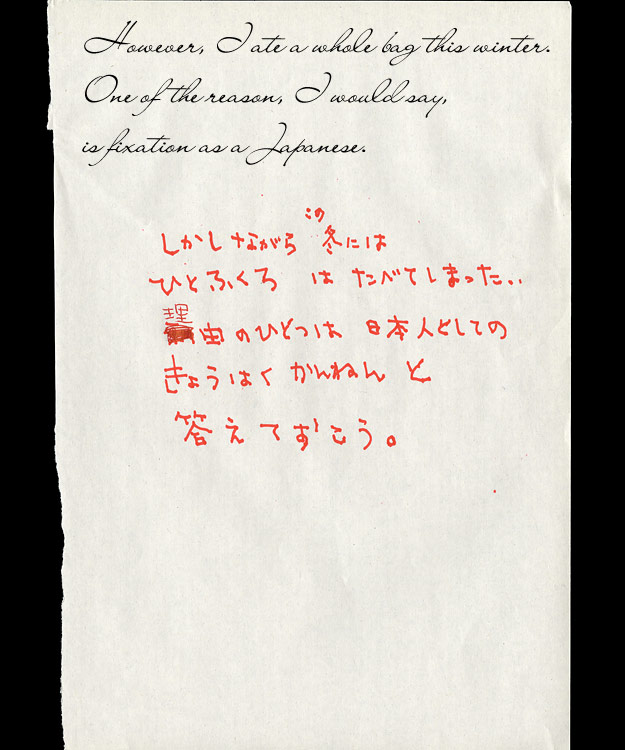 However, I ate a whole bag this winter.
One of the reason, I would say,
is fixation as a Japanese.
しかしながら この冬には
ひとふくろ は たべてしまった..
理由のひとつは 日本人としての
きょうはく かんねん と
答えておこう。